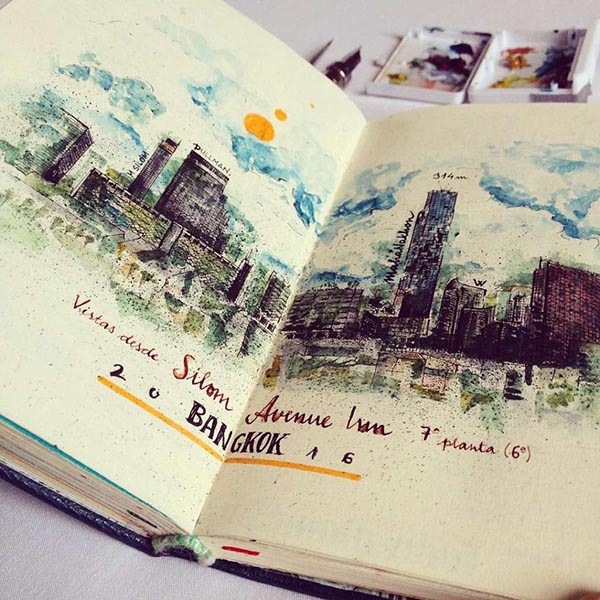 SILOM
PULLMAN
314m
MahaNakhon
W
Vistas desde Silom Avenue Inn 7ª planta (6º)
2 0 BANGKOK 1 6